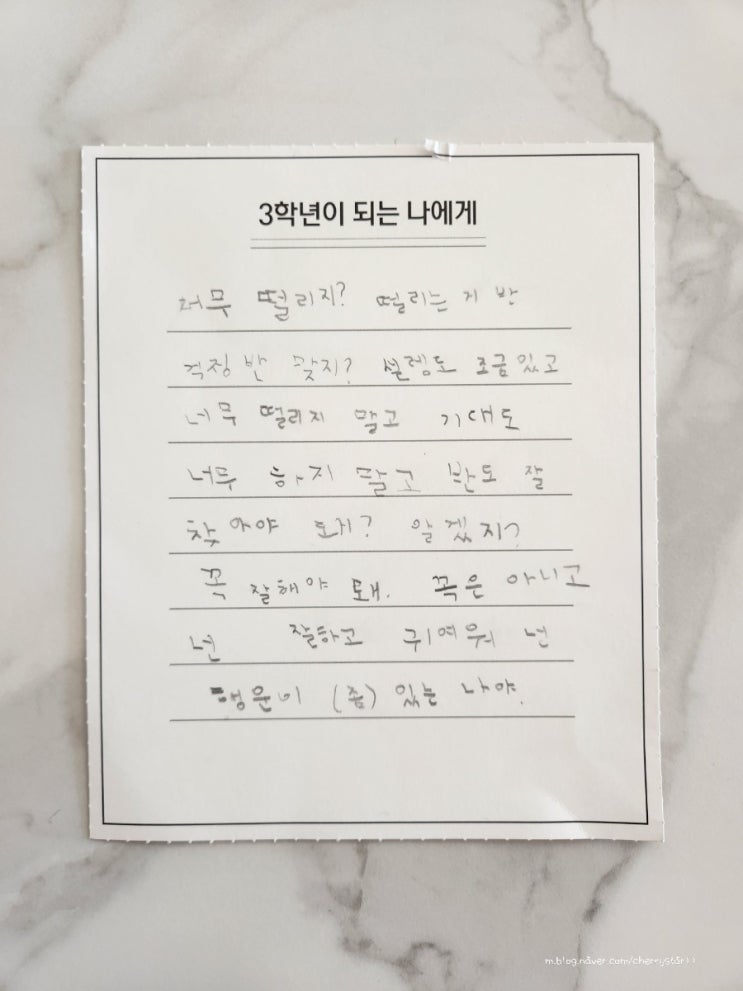 3학년이 되는 나에게
너무 떨리지? 떨리는 게 반
걱정 반 맞지? 설렘도 조금있고
너무 떨리지 말고 기대도
너무 하지 말고 반도 잘
찾아야 돼? 알겠지?
꼭 잘해야 돼. 꼭은 아니고
넌 잘하고 귀여워 넌
행운이 (좀) 있는 나야.